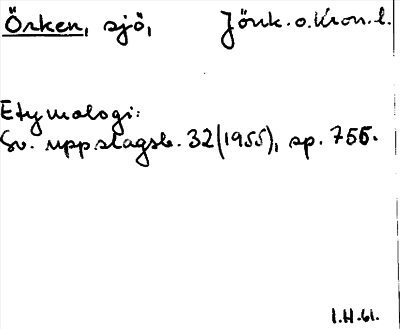 Örken, sjö, Jönk.o.Kron.l.
Etymologi:
Sv. uppslagsb. 32(1955), sp. 755.
I.H.61.